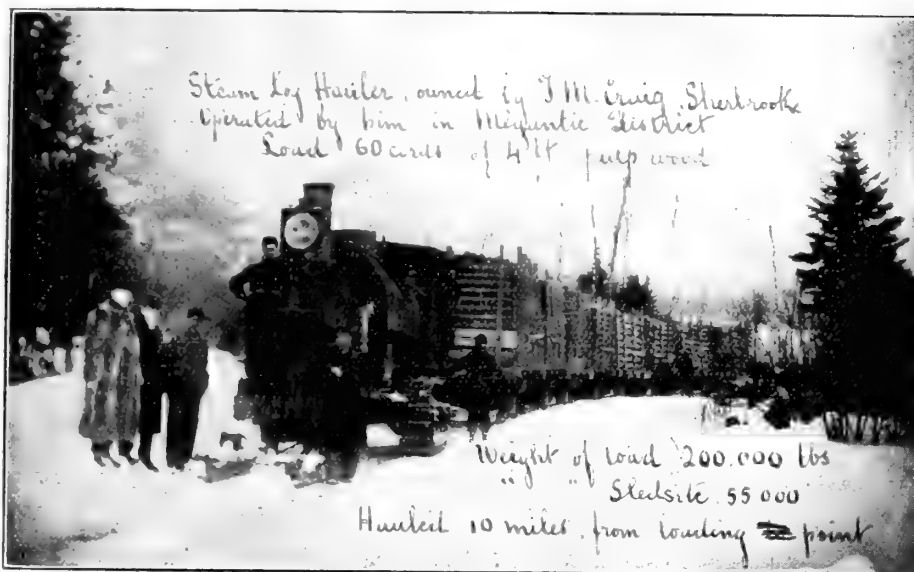 Steam Log Hauler, owned by J M. Craig Sherbrooke
Operated by him in Megantic District
Load 60 cords of 4 ft pulp wood
Weight of load 200.000 lbs
" " Sleds 55 000
Hauled 10 miles. from loading point